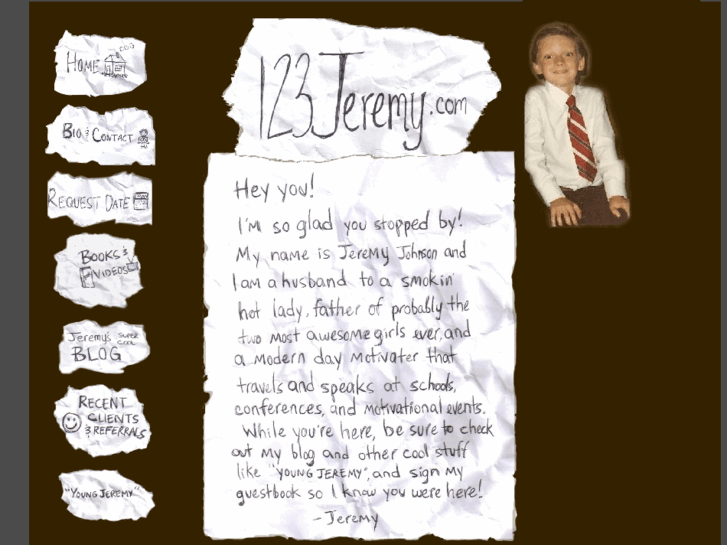 123Jeremy.com
Home
Bio & Contact
Request Date
Books &
Videos
Jeremy's Super
Cool
BLOG
Recent
Clients
& Referrals
"Young Jeremy"
Hey you!
I'm so glad you stopped by!
My name is Jeremy Johnson and
I am a husband to a smokin'
hot lady, father of probably the
two most awesome girls ever, and
a modern day motivater that
travels and speaks at schools,
conferences, and motivational events.
While you're here, be sure to check
out my blog and other cool stuff
like "Young Jeremy", and sign my
guestbook so I know you were here!
- Jeremy